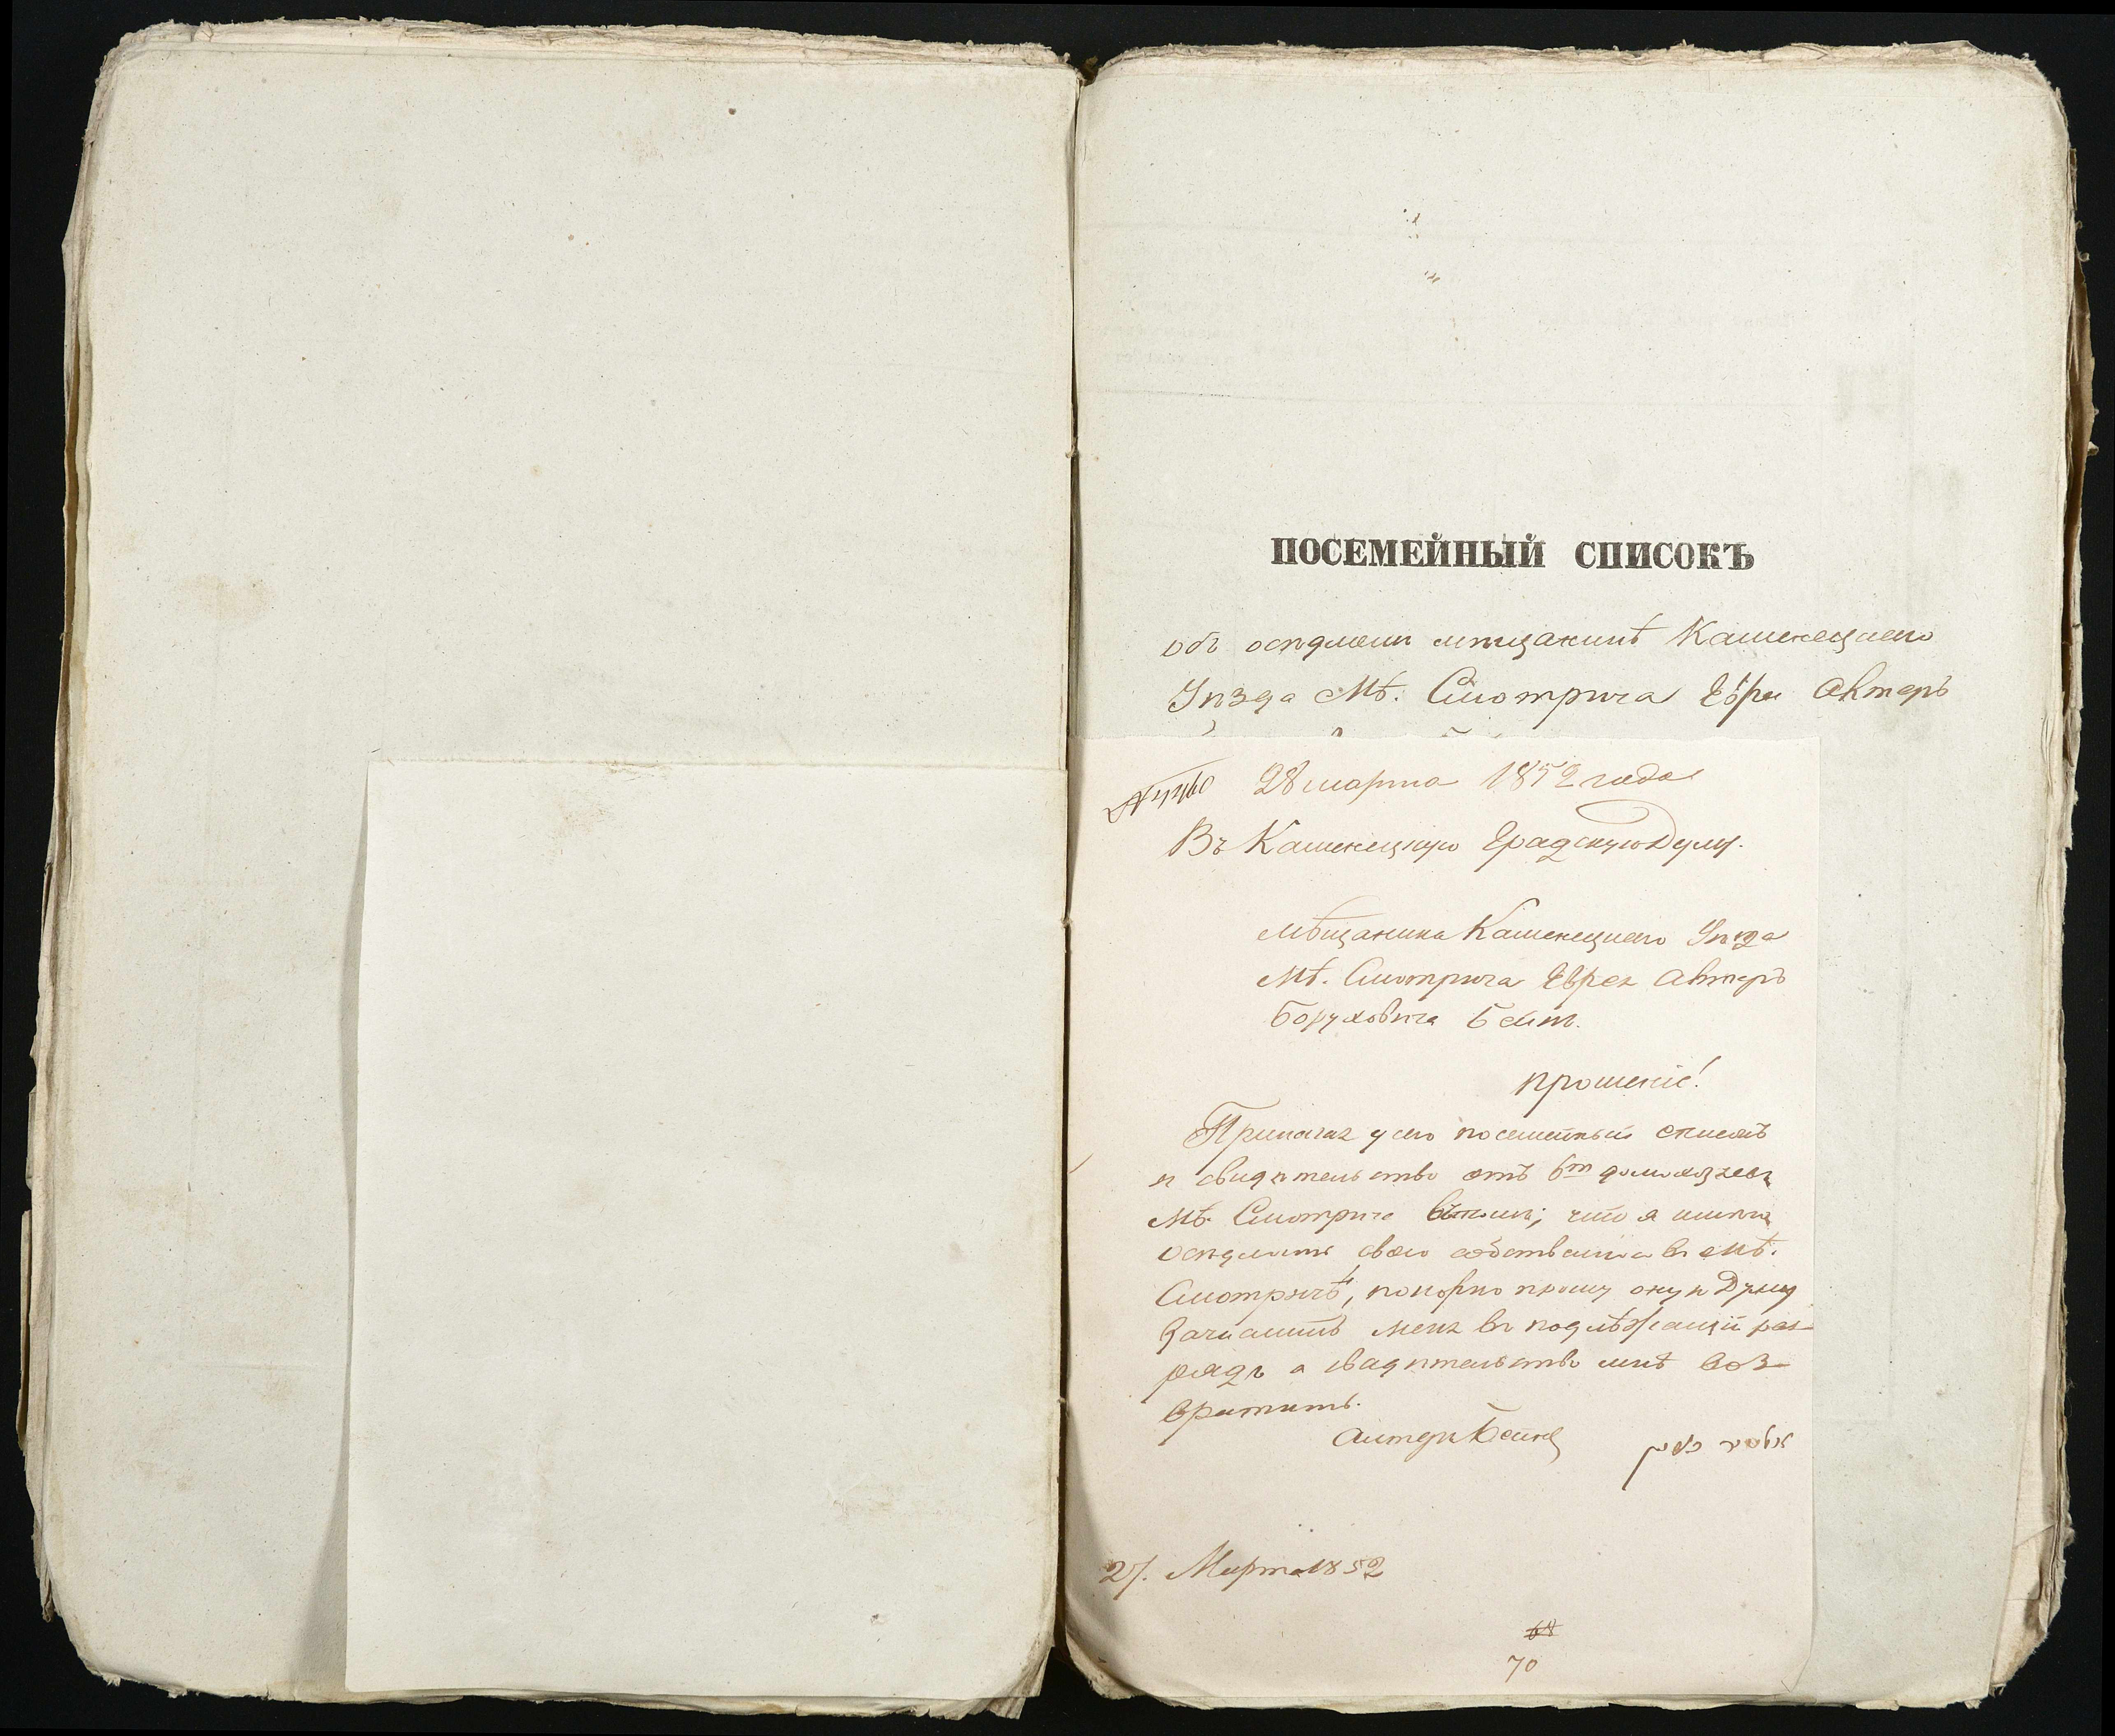 ПОСЕМЕЙНЫЙ СПИСОКЪ
объ осѣдломъ мѣщанинѣ Каменецкаго
Уѣзда Мѣ. Смотрича Евреи Алтеръ
28 марта 1852 года
Въ Каменецкую Градскую Думу.
Мѣщанина Каменецкаго Уѣзда
Мѣ. Смотрича Еврея Алтеръ
Боруховича
прошеніе!
Прилагая у сего посемейный списокъ
и свидѣтельство отъ 6ти домохозяевъ
Мѣ. Смотрича что я имѣю
осѣдлость свою собственную въ Мѣ.
Смотричѣ, покорно прошу оную Думу
Зачислить меня въ подлѣжащій раз-
рядъ а свидѣтельство мнѣ воз-
вратить.
Алтеръ אלטר
27. Марта 1852
68
70